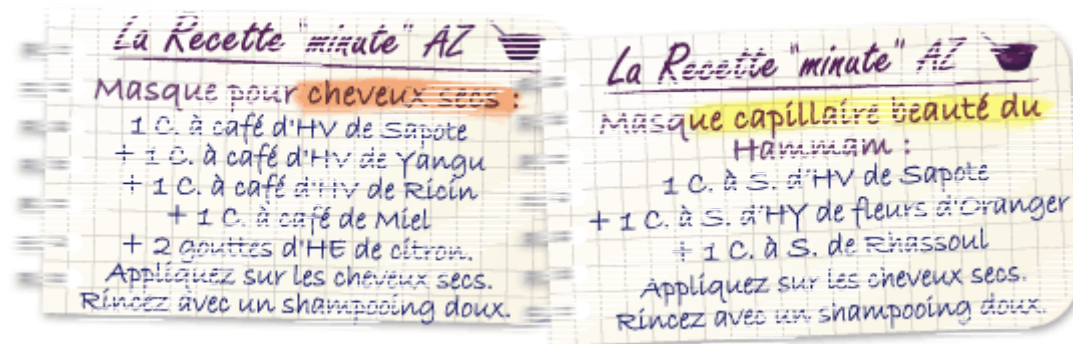 La Recette "minute" AZ
Masque pour cheveux secs :
1 C. à café d'HV de Sapote
+ 1 C. à café d'HV de Yangu
+ 1 C. à café d'HV de Ricin
+ 1 C. à café de Miel
+ 2 gouttes d'HE de citron.
Appliquez sur les cheveux secs.
Rincez avec un shampooing doux.
La Recette "minute" AZ
Masque capillaire beauté du
Hammam :
1 C. à S. d'HV de Sapote
+ 1 C. à S. d'HY de fleurs d'Oranger
+ 1 C. à S. de Rhassoul
Appliquez sur les cheveux secs.
Rincez avec un shampooing doux.